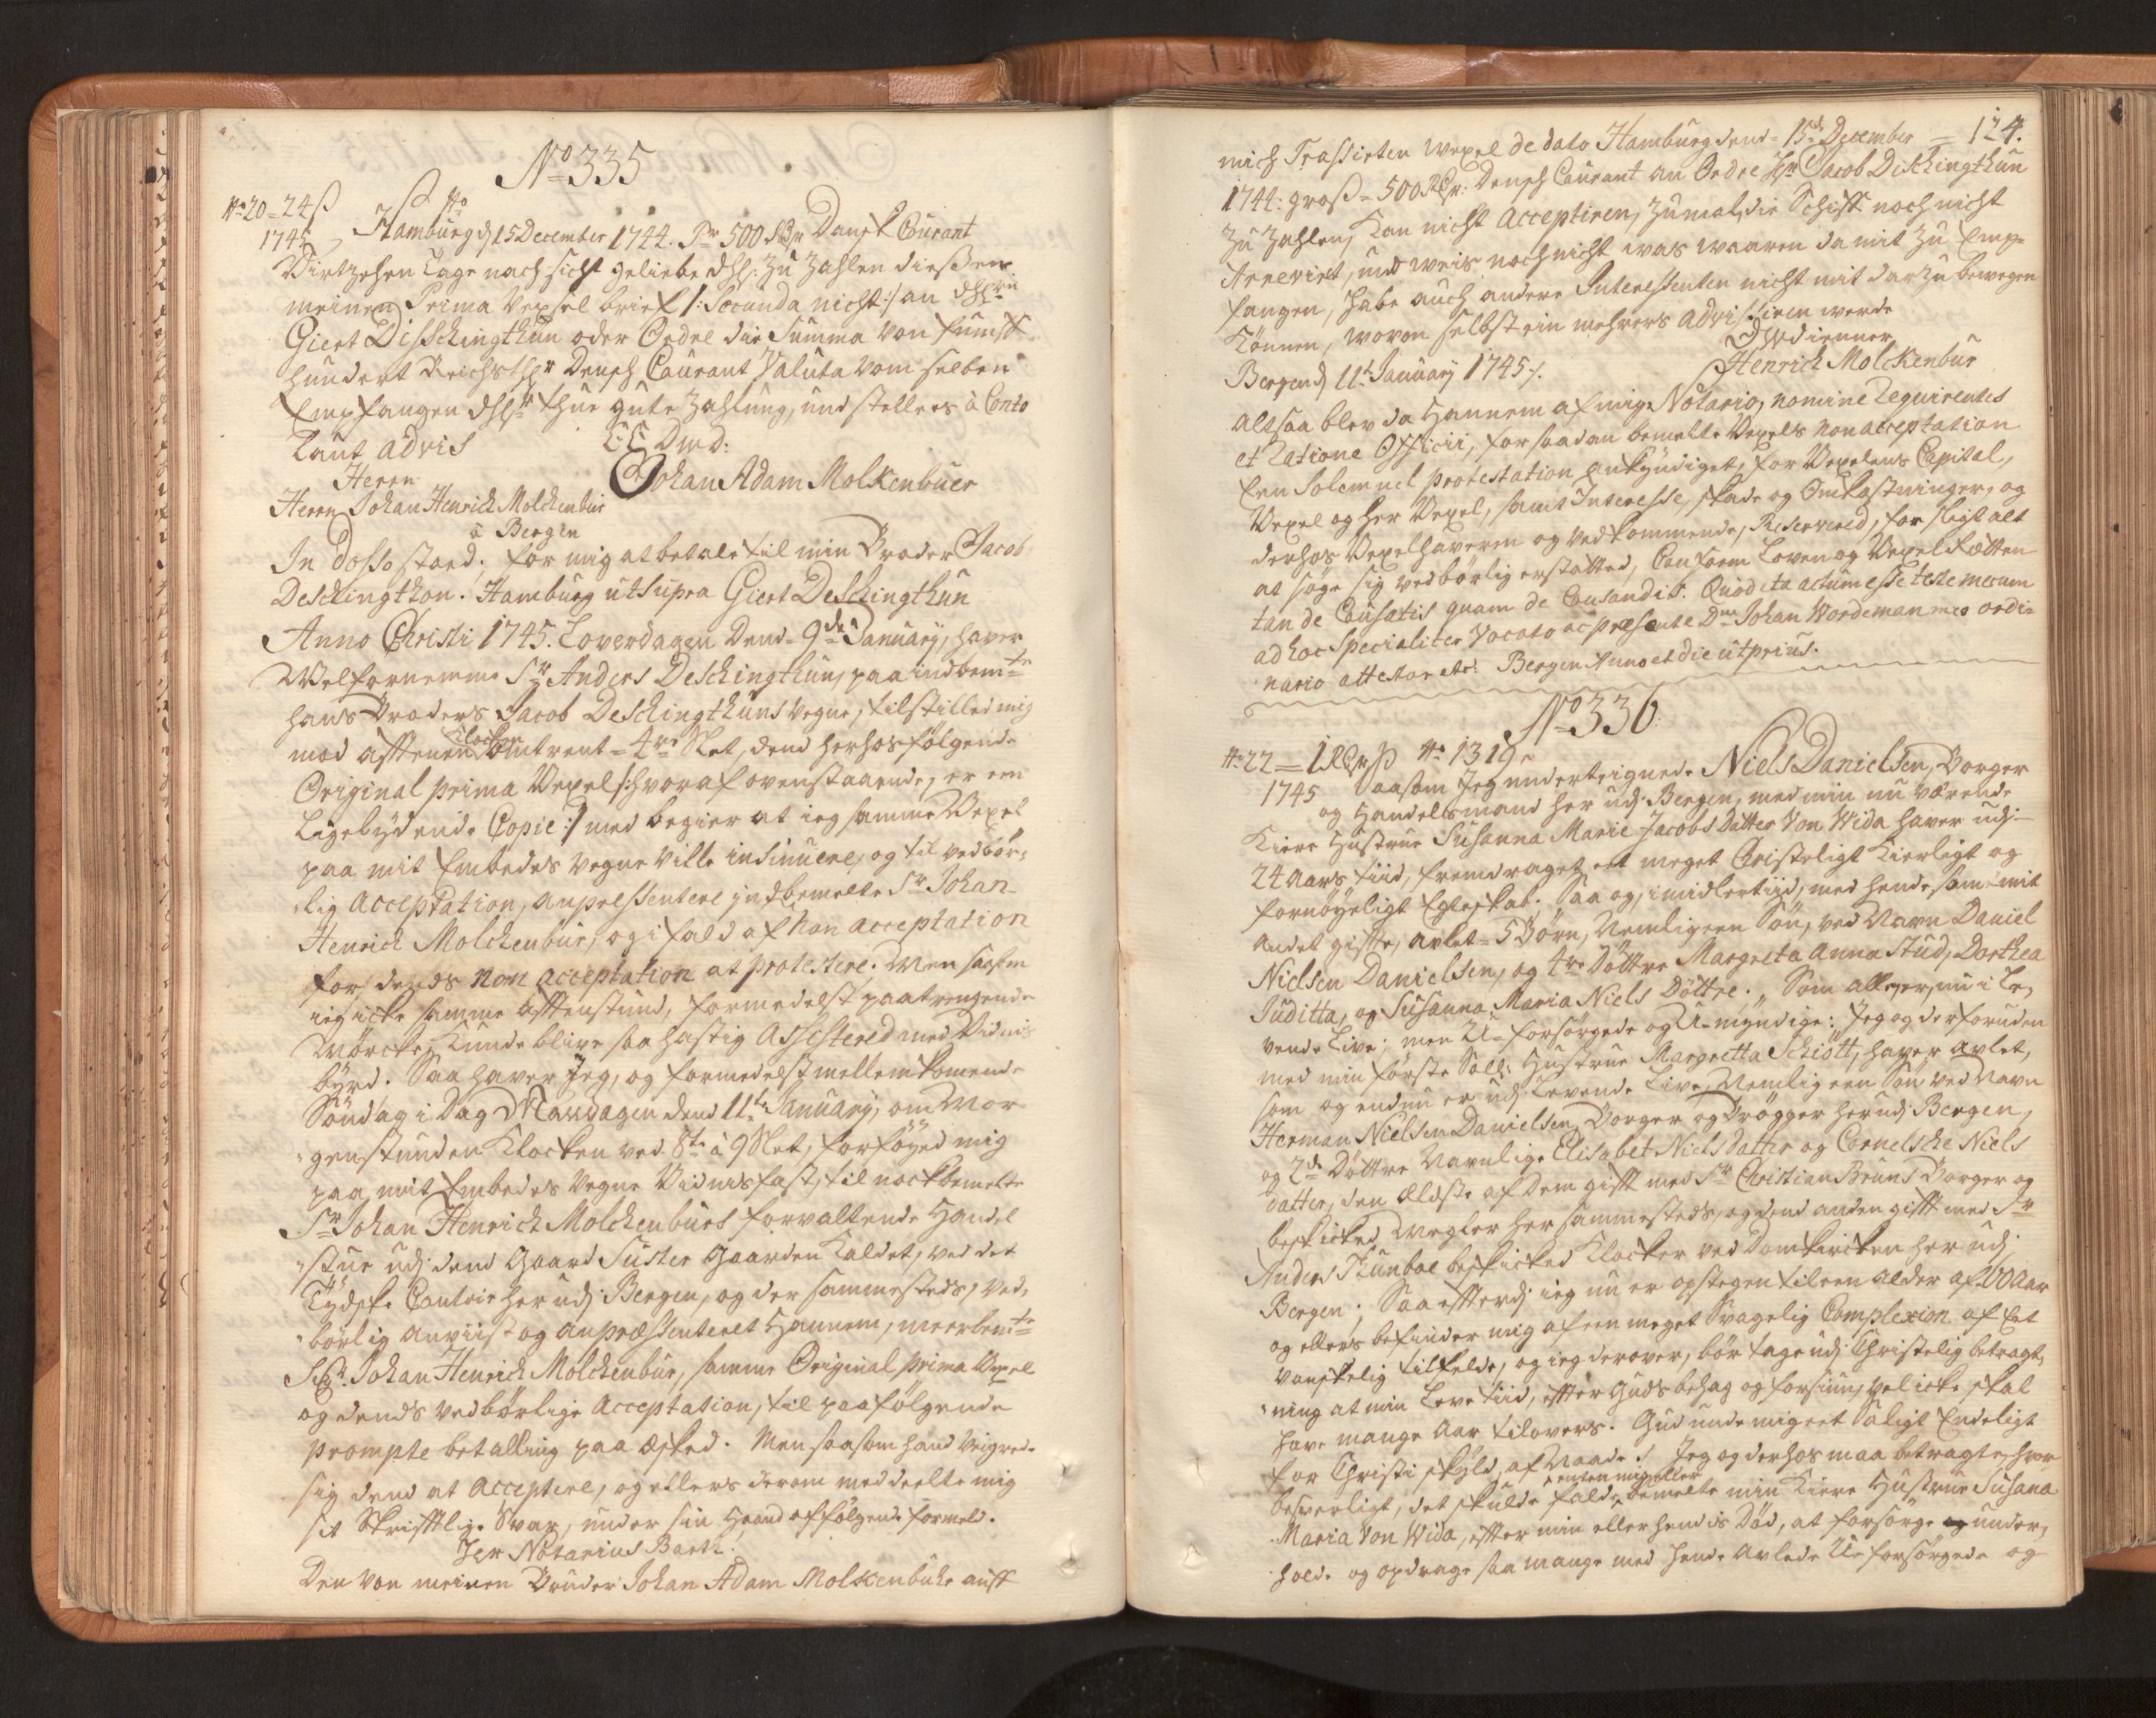 No 335
No 20 = 24 ß
1745
Hamburg d 15 December 1744. Pr 500 Rdr Dansk Courant
Virtzehen Tage nach sicht geliebe dhl: zu zahlen dießen
meinen Prima Wexel brief /: Secunda nicht :/ an dhhrn
Giert Disschingthun oder Ordre die Summa von fünff
hundert Reichsthlr Densch Courant Valuta vom selben
Empfangen dhhr thue gute zahlung, und stelle es à Conto
Laut advis
Herrn
Johan Adam Molkenbuer
Herrn Johan Henrich Molckenbur
à Bergen
In dosso stoed. for mig at betale til min Broder Jacob
Deschingthon. Hamburg ut supra Giert Deschingthun
Anno Christi 1745. Loverdagen dend 9de January, haver
Welfornemme Sr Anders Deschingthun, paa indbemte
hans Broders Jacob Deschingthuns vegne, tilstilled mig
mod afftenen Klocken omtrent = 4re Slet, dend herhosfølgende
Original prima Vexel /: hvoraf ovenstaaende, er een
Ligelydende Copie :/ med begier at ieg samme Vexel
paa mit Embedes vegne ville insinuere, og til vedbør-
lig Acceptation, anpresentere indbemelte Sr Johan
Henrich Molckenbur, og i fald af Non acceptation
for dends non acceptation at protestere. Men saasom
ieg icke samme Afftenstund, formedelst paatrengende
Mørcke, kunde blive saa hastig Assistered med Vidnis
byrd. Saa haver Jeg, og formedelst mellemkomende
Søndag i Dag Mandagen dend 11te January, om Mor
genstunden Klocken ved 8te à 9 Slet, forføyed mig
paa mit Embedes vegne Vidnisfast, til nockbemelte
Sr Johan Henrich Molckenburs forvaltende Handel
stue udj dend Gaard Suster Gaarden kaldet, ved det
Tydske Contoir her udj Bergen, og der sammesteds, ved
børlig anviist og anpræsenteret Hannem, meerbemte
Sr Johan Henrich Molckenbur, samme Original prima Vexel
og dends vedbørlige Acceptation, til paafølgende
prompte betalling paa Æsked. Men saasom hand veigrede
sig dend at Acceptere, og ellers derom meddeelte mig
sit Skrifftlige Svar, under sin Haand affølgende formeld.
Her Notarius Barth.
Den von meinen Bruder Johan Adam Molckenbuhr auff
124.
mich Trassirten Wexel de dato Hamburg dend 15de December
1744: groß = 500 Rdr: Densch Courant an Ordre Hr Jacob Dischingthun
zu zahlen, Kan nicht acceptiren, zumal die Schiff noch nicht
Arrevirt, und weis noch nicht was waaren da mit zu Emp-
fangen, habe auch andere Interessenten nicht mit darzu bewegen
können, wovon selbst ein mehrers advissiren werde
Dhwdienner
Bergen d 11t January 1745 /.
Henrich Molckenbur
Altsaa blev da Hannem af mig Notario, nomine Requirentes
et Ratione Officii, for saadan bemelte Vexels non acceptation
Een Solemnel protestation ankyndiget, for Vexelens Capital,
Vexel og her Vexel, samt Interesse, skade og Omkastninger, og
derhos Vexelhaveren og vedkommende, Reservered, for sligt alt
at søge sig vedbørlig erstatted, Conform Loven og VexelRætten
tan de Causatis quam de Causandis. Quod ita actum esse teste mecum
ad hoc Specialiter Vocato ac præsente Dno Johan Wordeman meo ordi-
nario attestor etc: Bergen Anno et die ut prius.
No 336
No 22 = 1 Rdr ß No 1319
1745
Saasom Jeg underteignede Niels Danielsen, Borger
og Handelsmand her udj Bergen, med min nu værende
Kiere Hustrue Susanna Marie Jacobs Datter Von Wida haver udj
24 Aars tiid, fremdraget et meget Christeligt Kierligt og
fornøyeligt Egteskab. Saa og, imidlertiid, med hende som mit
Andet giffte, avlet = 5 Børn, Nemlig een Søn, ved Navn Daniel
Nielsen Danielsen, og 4re Døttre Margreta Anna Stud, Dorthea
Juditta, og Susanna Maria Niels Døttre. Som alle er, nu i Le-
vende Live; men U-forsørgede og U-myndige: Jeg og derforuden
med min første Sall: Hustrue Margretta Schiøtt, haver avlet,
som og endnu er udj Levende Live, Nemlig een Søn ved Navn
Herman Nielsen Danielsen, Borger og Brøgger her udj Bergen,
og 2de Døttre Navnlige Elisabet Nielsdatter og Cornelsche Niels
datter, den Ældste af dem gifft med Sr Christian Bruns Borger og
beskicked Megler her sammesteds, og dend anden gifft med Sr
Anders Kunboe beskicked Klocker ved Domkircken her udj
Bergen; Saa efterdj ieg nu er opstegen til een alder af 60 Aar
og ellers befinder mig af een meget Svagelig Complexion af Et
vanskelig tilfelde, og ieg derover, bør tage udj Christelig betragt-
ning at min Leve tiid, effter Guds behag og forsiun, vel icke skal
have mange Aar tilovers. Gud unde mig eet Saligt Endeligt
for Christi skyld, af Naade! Jeg og derhos maa betragte, hvor
besverligt, det skulde falde enten mig eller bemelte min Kiere Hustrue Susana
Maria Von Wida, effter min eller hendis Død, at forsørge under-
holde og opdrage saa mange med hende avlede U-forsørgede og